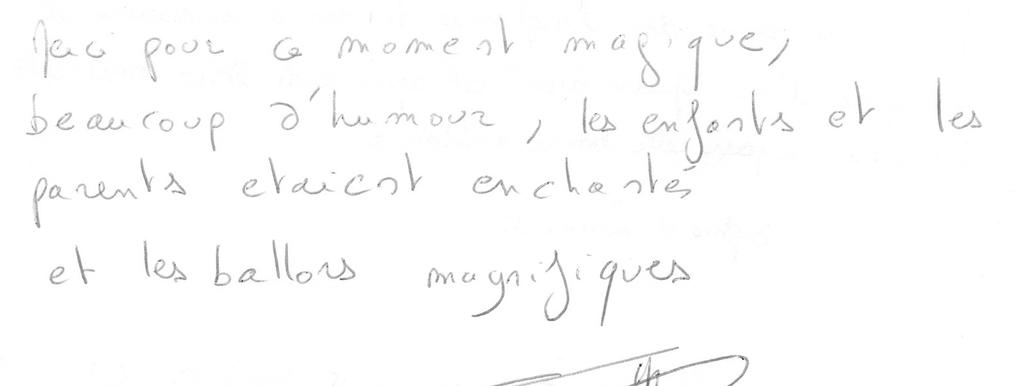 Merci pour ce moment magique,
beaucoup d'humour, les enfants et les
parents etaient enchantés
et les ballons magnifiques